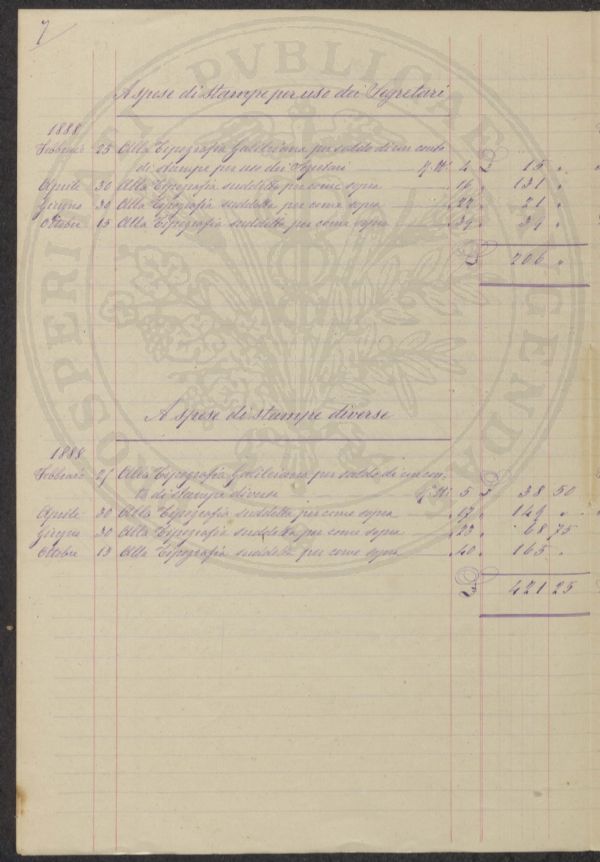 7
PROSPERITATI PVBLICAE AVGENDAE
A spese di stampe per uso dei Segretari
1888
Febbraio 25 Alla Tipografia Galileiana per saldo di un conto
di stampe per uso dei Segretari 4 £ 15 "
Aprile 30 Alla Tipografia suddetta per come sopra " 16 " 131 "
Giugno 30 Alla Tipografia suddetta per come sopra " 22 " 21 "
Ottobre 13 Alla Tipografia suddetta per come sopra " 39 " 39 "
£ 206 "
A spese di stampe diverse
1888
Febbraio 25 Alla Tipografia Galileiana per saldo di un con-
to di stampe diverse 5 £ 38 50
Aprile 30 Alla Tipografia suddetta per come sopra " 17 " 149 "
Giugno 30 Alla Tipografia suddetta per come sopra " 23 " 68 75
Ottobre 13 Alla Tipografia suddetta per come sopra " 40 " 165 "
£ 421 25